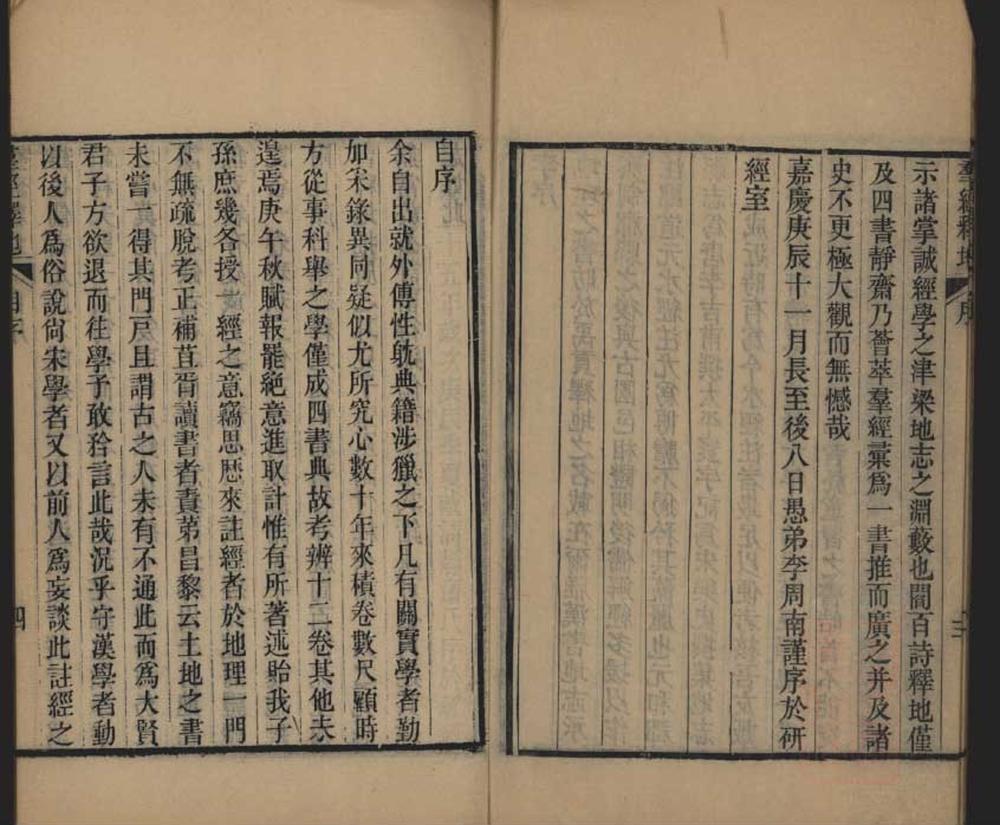 羣經釋地 序
示諸掌誠經學之津梁地志之淵藪也閻百詩釋地僅
及四書靜齋乃薈萃羣經彙爲一書推而廣之并及諸
史不更極大觀而無憾哉
嘉慶庚辰十一月長至後八日愚弟李周南謹序於研
經室
自序
余自出就外傅性躭典籍涉獵之下凡有關實學者勤
加采錄異同疑似尤所究心數十年來積卷數尺顧時
方從事科舉之學僅成四書典故考辨十二卷其他未
遑焉庚午秋賦報罷絶意進取計惟有所著述貽我子
孫庶幾各授一經之意竊思歷來註經者於地理一門
不無疏脫考正補苴胥讀書者責苐昌黎云土地之書
未嘗一得其門戸且謂古之人未有不通此而爲大賢
君子方欲退而徃學予敢矜言此哉况乎守漢學者動
以後人爲俗說尙宋學者又以前人爲妄談此註經之
羣經釋地 自序 四